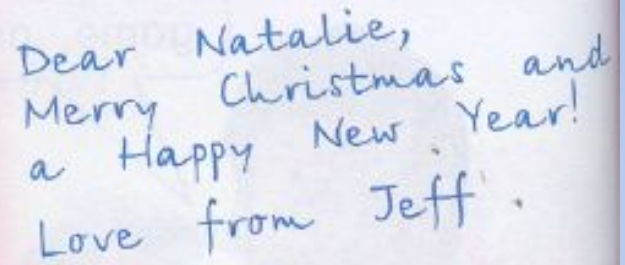 Dear Natalie,
Merry Christmas and
a Happy New Year!
Love from Jeff.